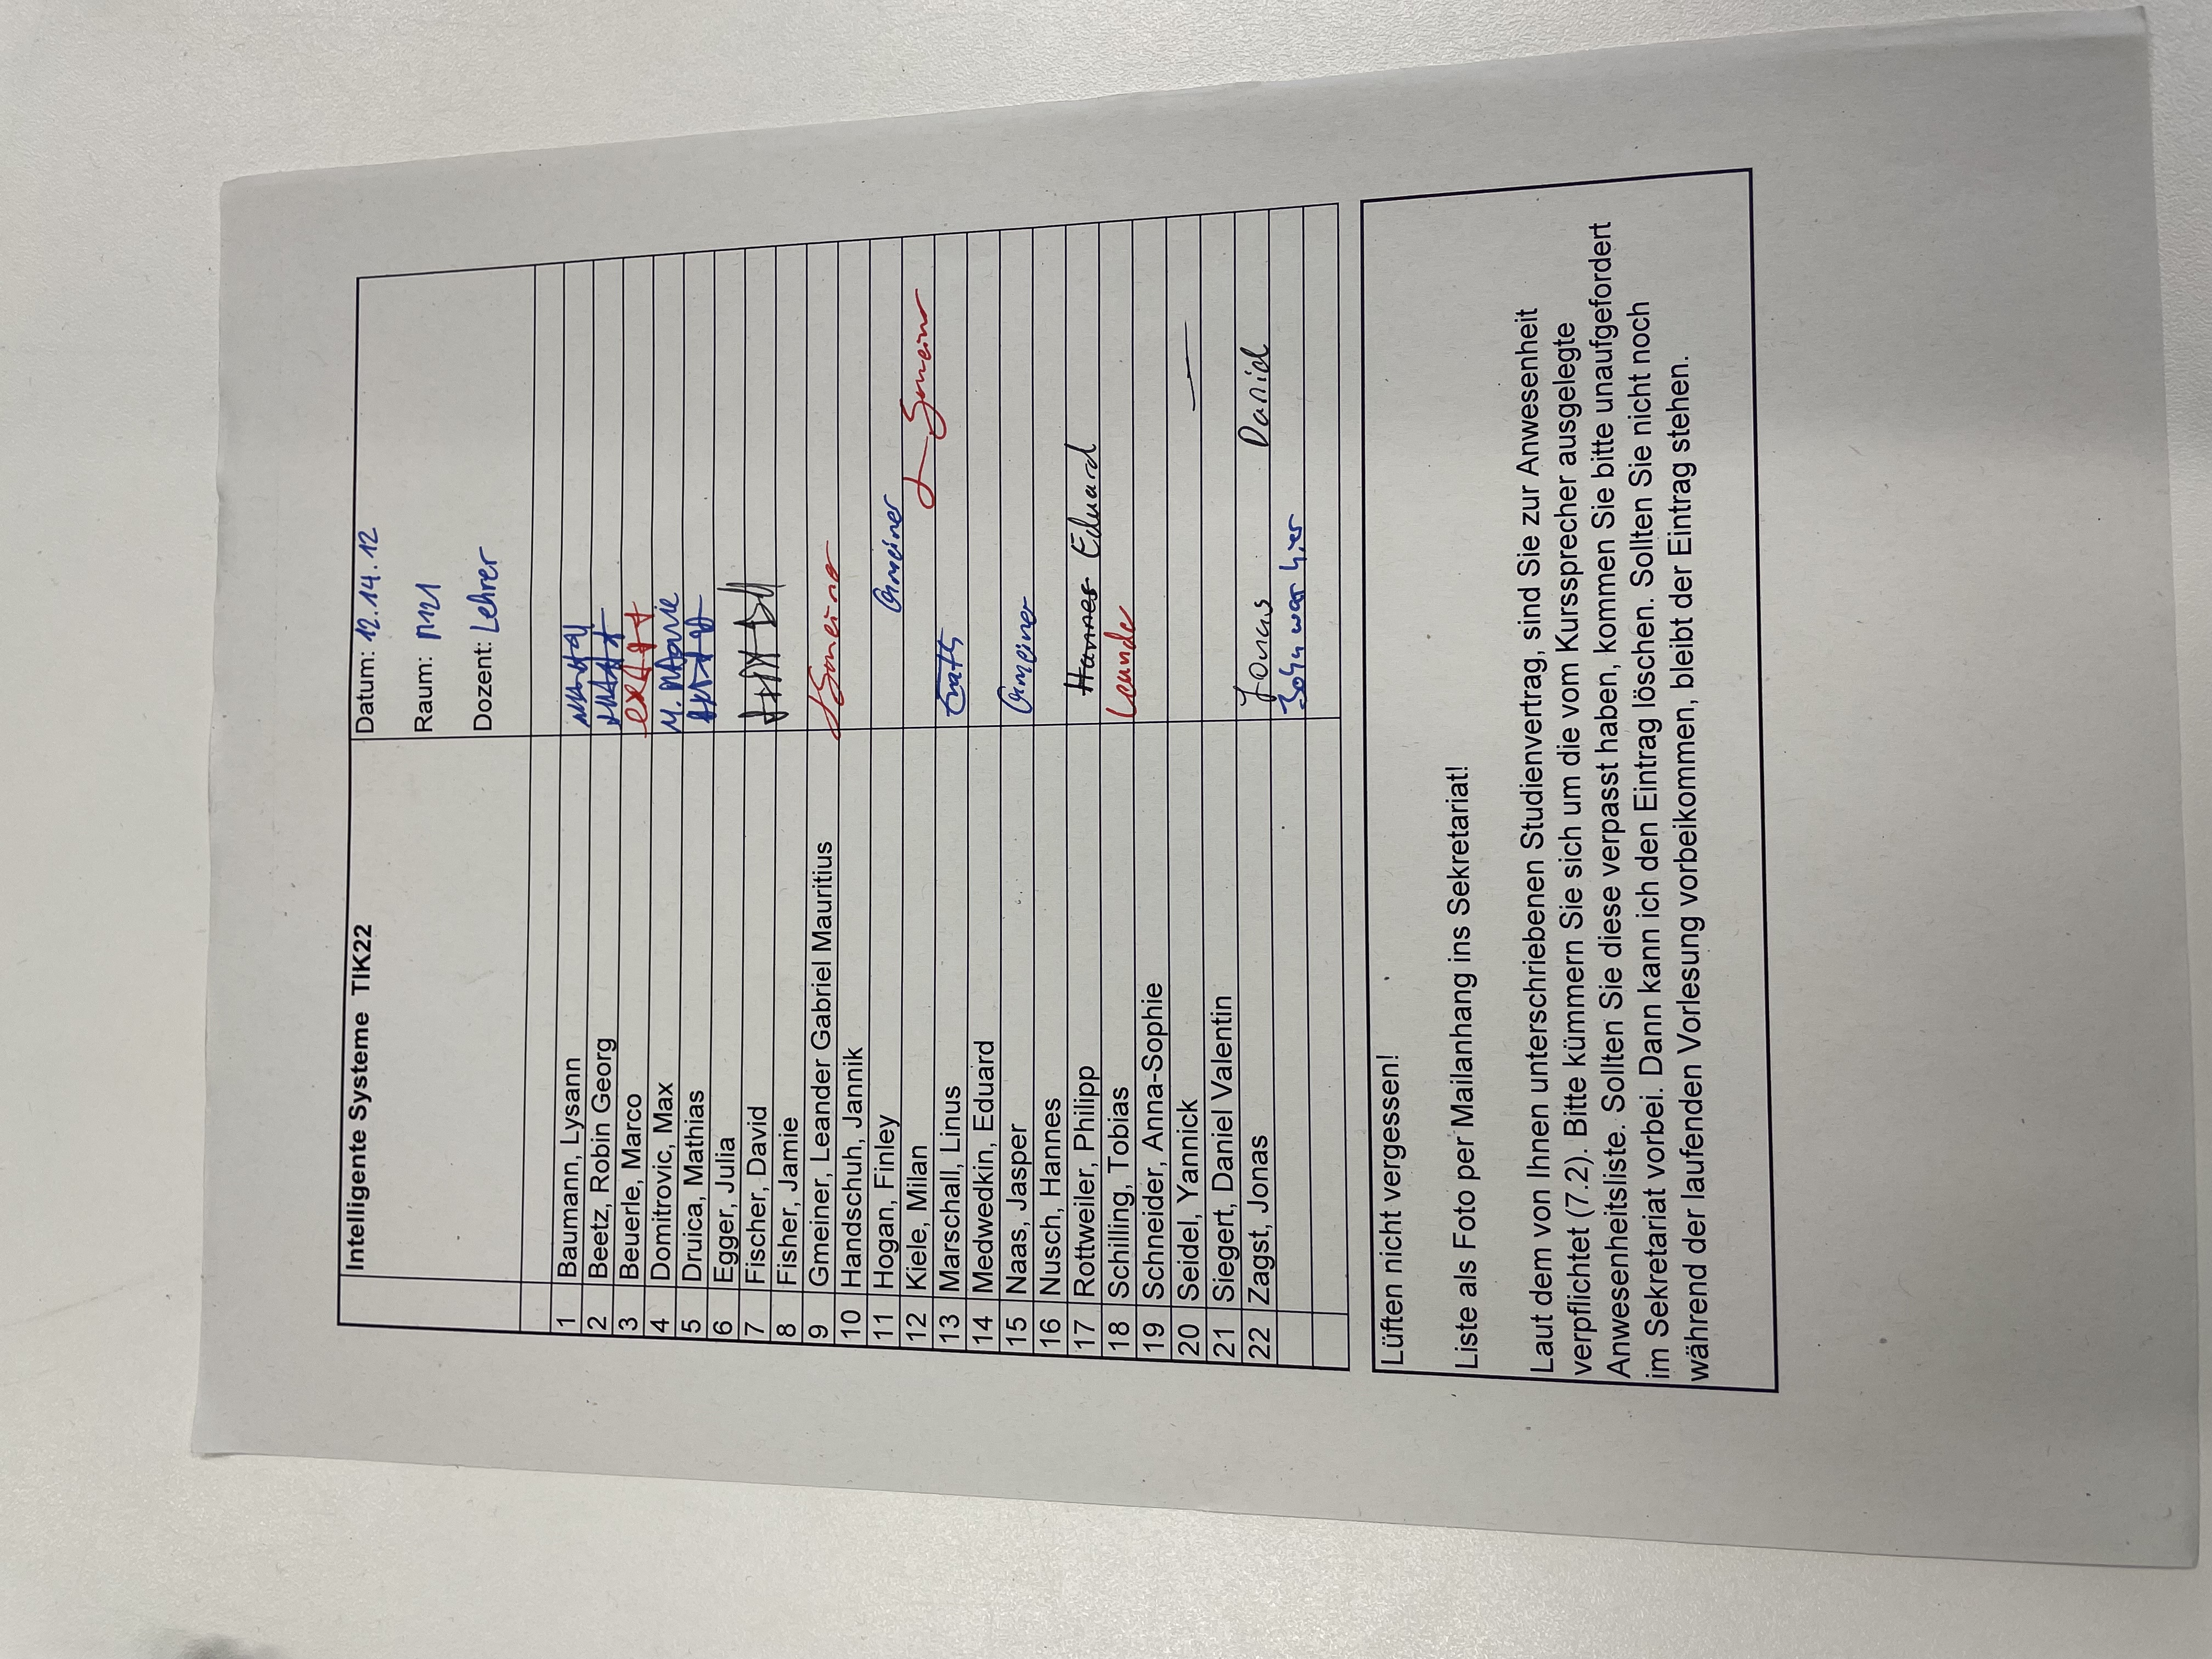 Intelligente Systeme TIK22
Datum: 12.14.12
Raum: M121
Dozent: Lehrer
1 Baumann, Lysann
2 Beetz, Robin Georg
3 Beuerle, Marco
4 Domitrovic, Max M.
5 Druica, Mathias
6 Egger, Julia
7 Fischer, David
8 Fisher, Jamie
9 Gmeiner, Leander Gabriel Mauritius Gmeiner
10 Handschuh, Jannik
11 Hogan, Finley Gmeiner
12 Kiele, Milan
13 Marschall, Linus
14 Medwedkin, Eduard
15 Naas, Jasper Gmeiner
16 Nusch, Hannes
17 Rottweiler, Philipp Hannes Eduard
18 Schilling, Tobias
19 Schneider, Anna-Sophie
20 Seidel, Yannick
21 Siegert, Daniel Valentin
22 Zagst, Jonas Jonas Daniel
John war hier
Lüften nicht vergessen!
Liste als Foto per Mailanhang ins Sekretariat!
Laut dem von Ihnen unterschriebenen Studienvertrag, sind Sie zur Anwesenheit
verpflichtet (7.2). Bitte kümmern Sie sich um die vom Kurssprecher ausgelegte
Anwesenheitsliste. Sollten Sie diese verpasst haben, kommen Sie bitte unaufgefordert
im Sekretariat vorbei. Dann kann ich den Eintrag löschen. Sollten Sie nicht noch
während der laufenden Vorlesung vorbeikommen, bleibt der Eintrag stehen.